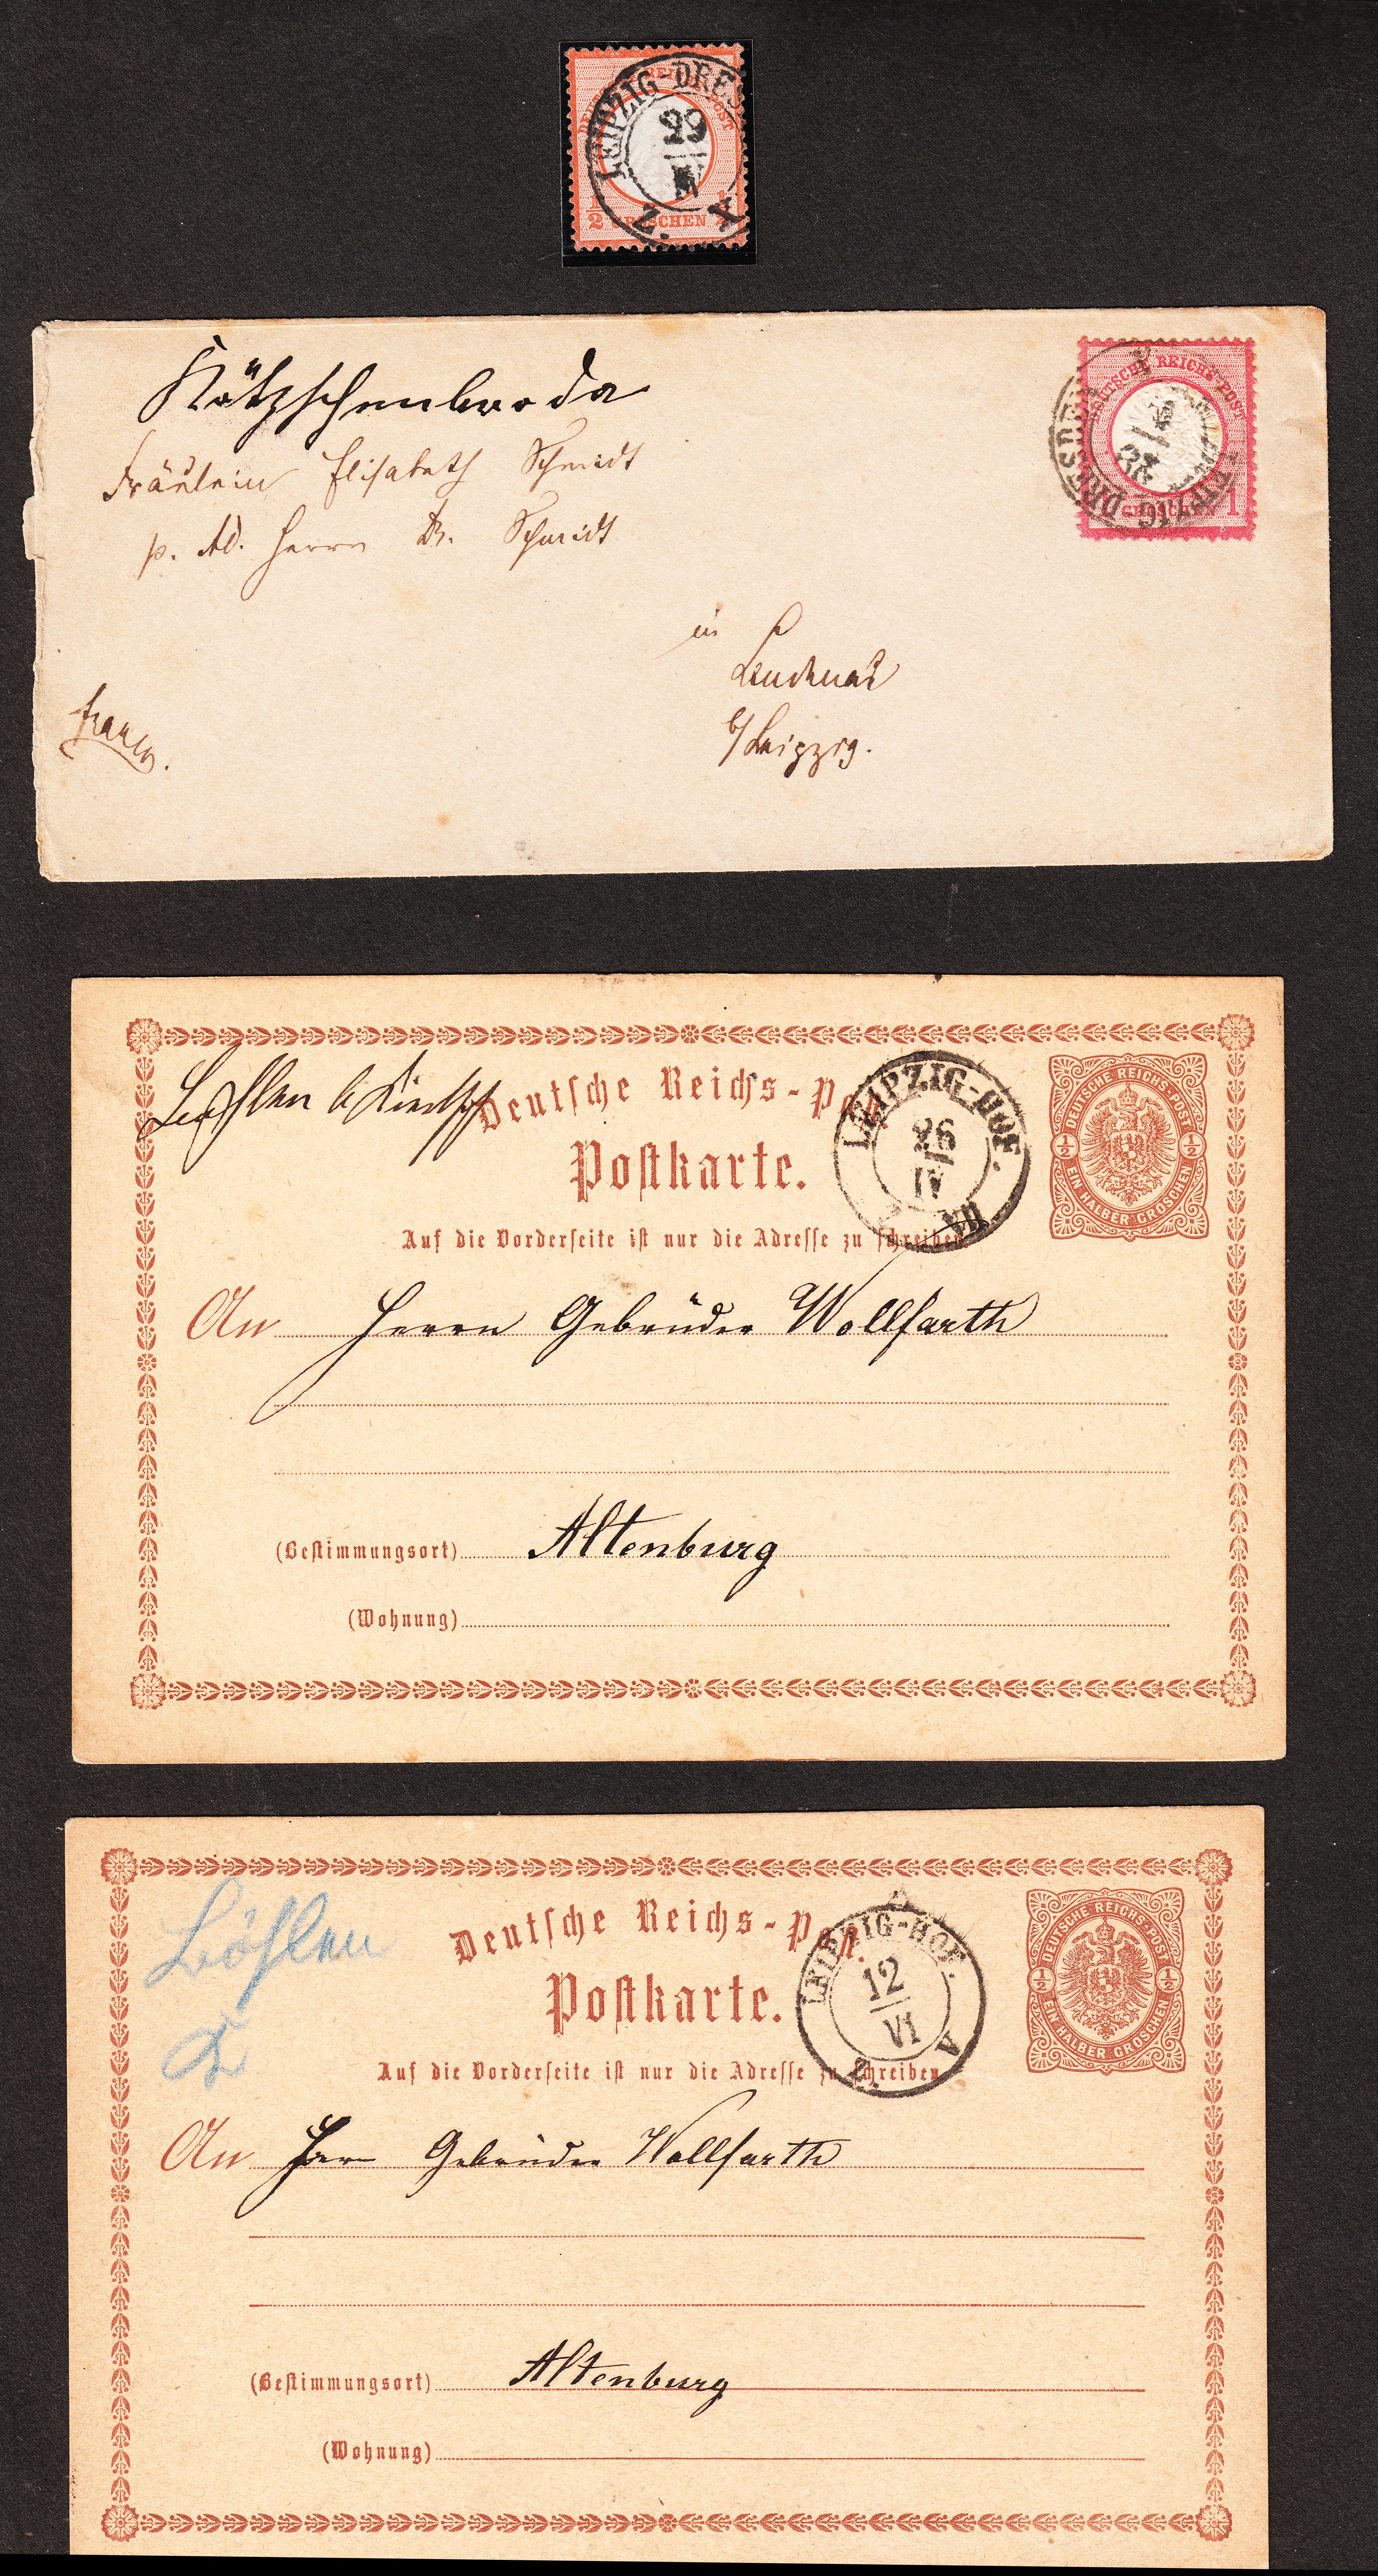 LEIPZIG-DRES
DEUTSCHE REICHS-POST
29
IV
Z. A
1/2 GROSCHEN 1/2
Kötzschenbroda
Fräulein Elisabeth Schmidt
p. Ad. Herrn Dr. Schmidt
in
Lindenau
b/Leipzig.
franco.
DEUTSCHE REICHS-POST
GROSCHEN 1
LEIPZIG-DRESDEN
Deutsche Reichs-Post.
Postkarte.
Auf die Vorderseite ist nur die Adresse zu schreiben
LEIPZIG-HOF.
26
IV
DEUTSCHE REICHS-POST
1/2 1/2
EIN HALBER GROSCHEN
An Herren Gebrüder Wollfarth
(Bestimmungsort) Altenburg
(Wohnung)
Böhlen
Deutsche Reichs-Post.
Postkarte.
Auf die Vorderseite ist nur die Adresse zu schreiben
LEIPZIG-HOF.
12
VI
Z. A
DEUTSCHE REICHS-POST
1/2 1/2
EIN HALBER GROSCHEN
An Herrn Gebrüder Wollfarth
(Bestimmungsort) Altenburg
(Wohnung)